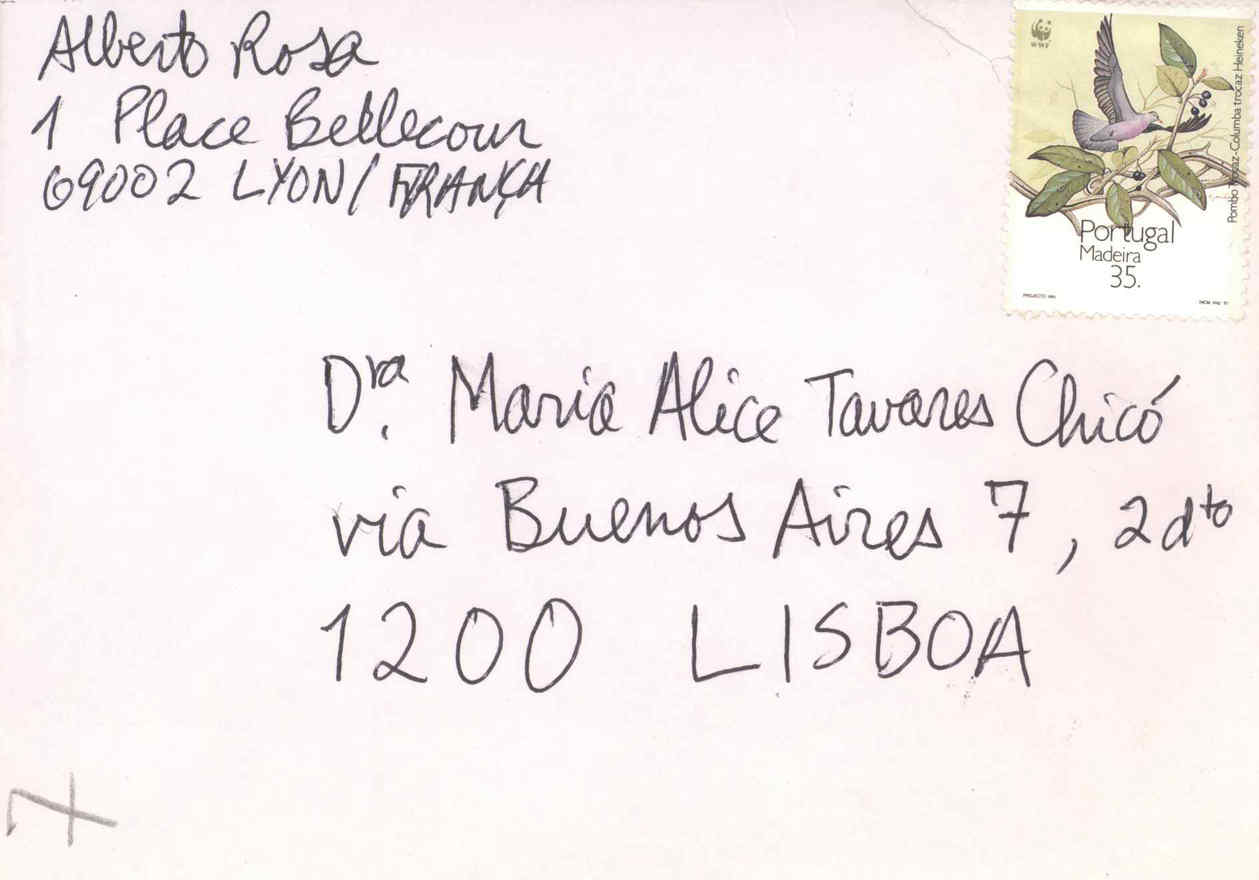 Alberto Rosa
1 Place Bellecour
69002 LYON / FRANÇA
WWF
Pombo Trocaz-Columba trocaz Heineken
Portugal
Madeira
35.
Dra. Maria Alice Tavares Chicó
via Buenos Aires 7, 2dto
1200 LISBOA
7